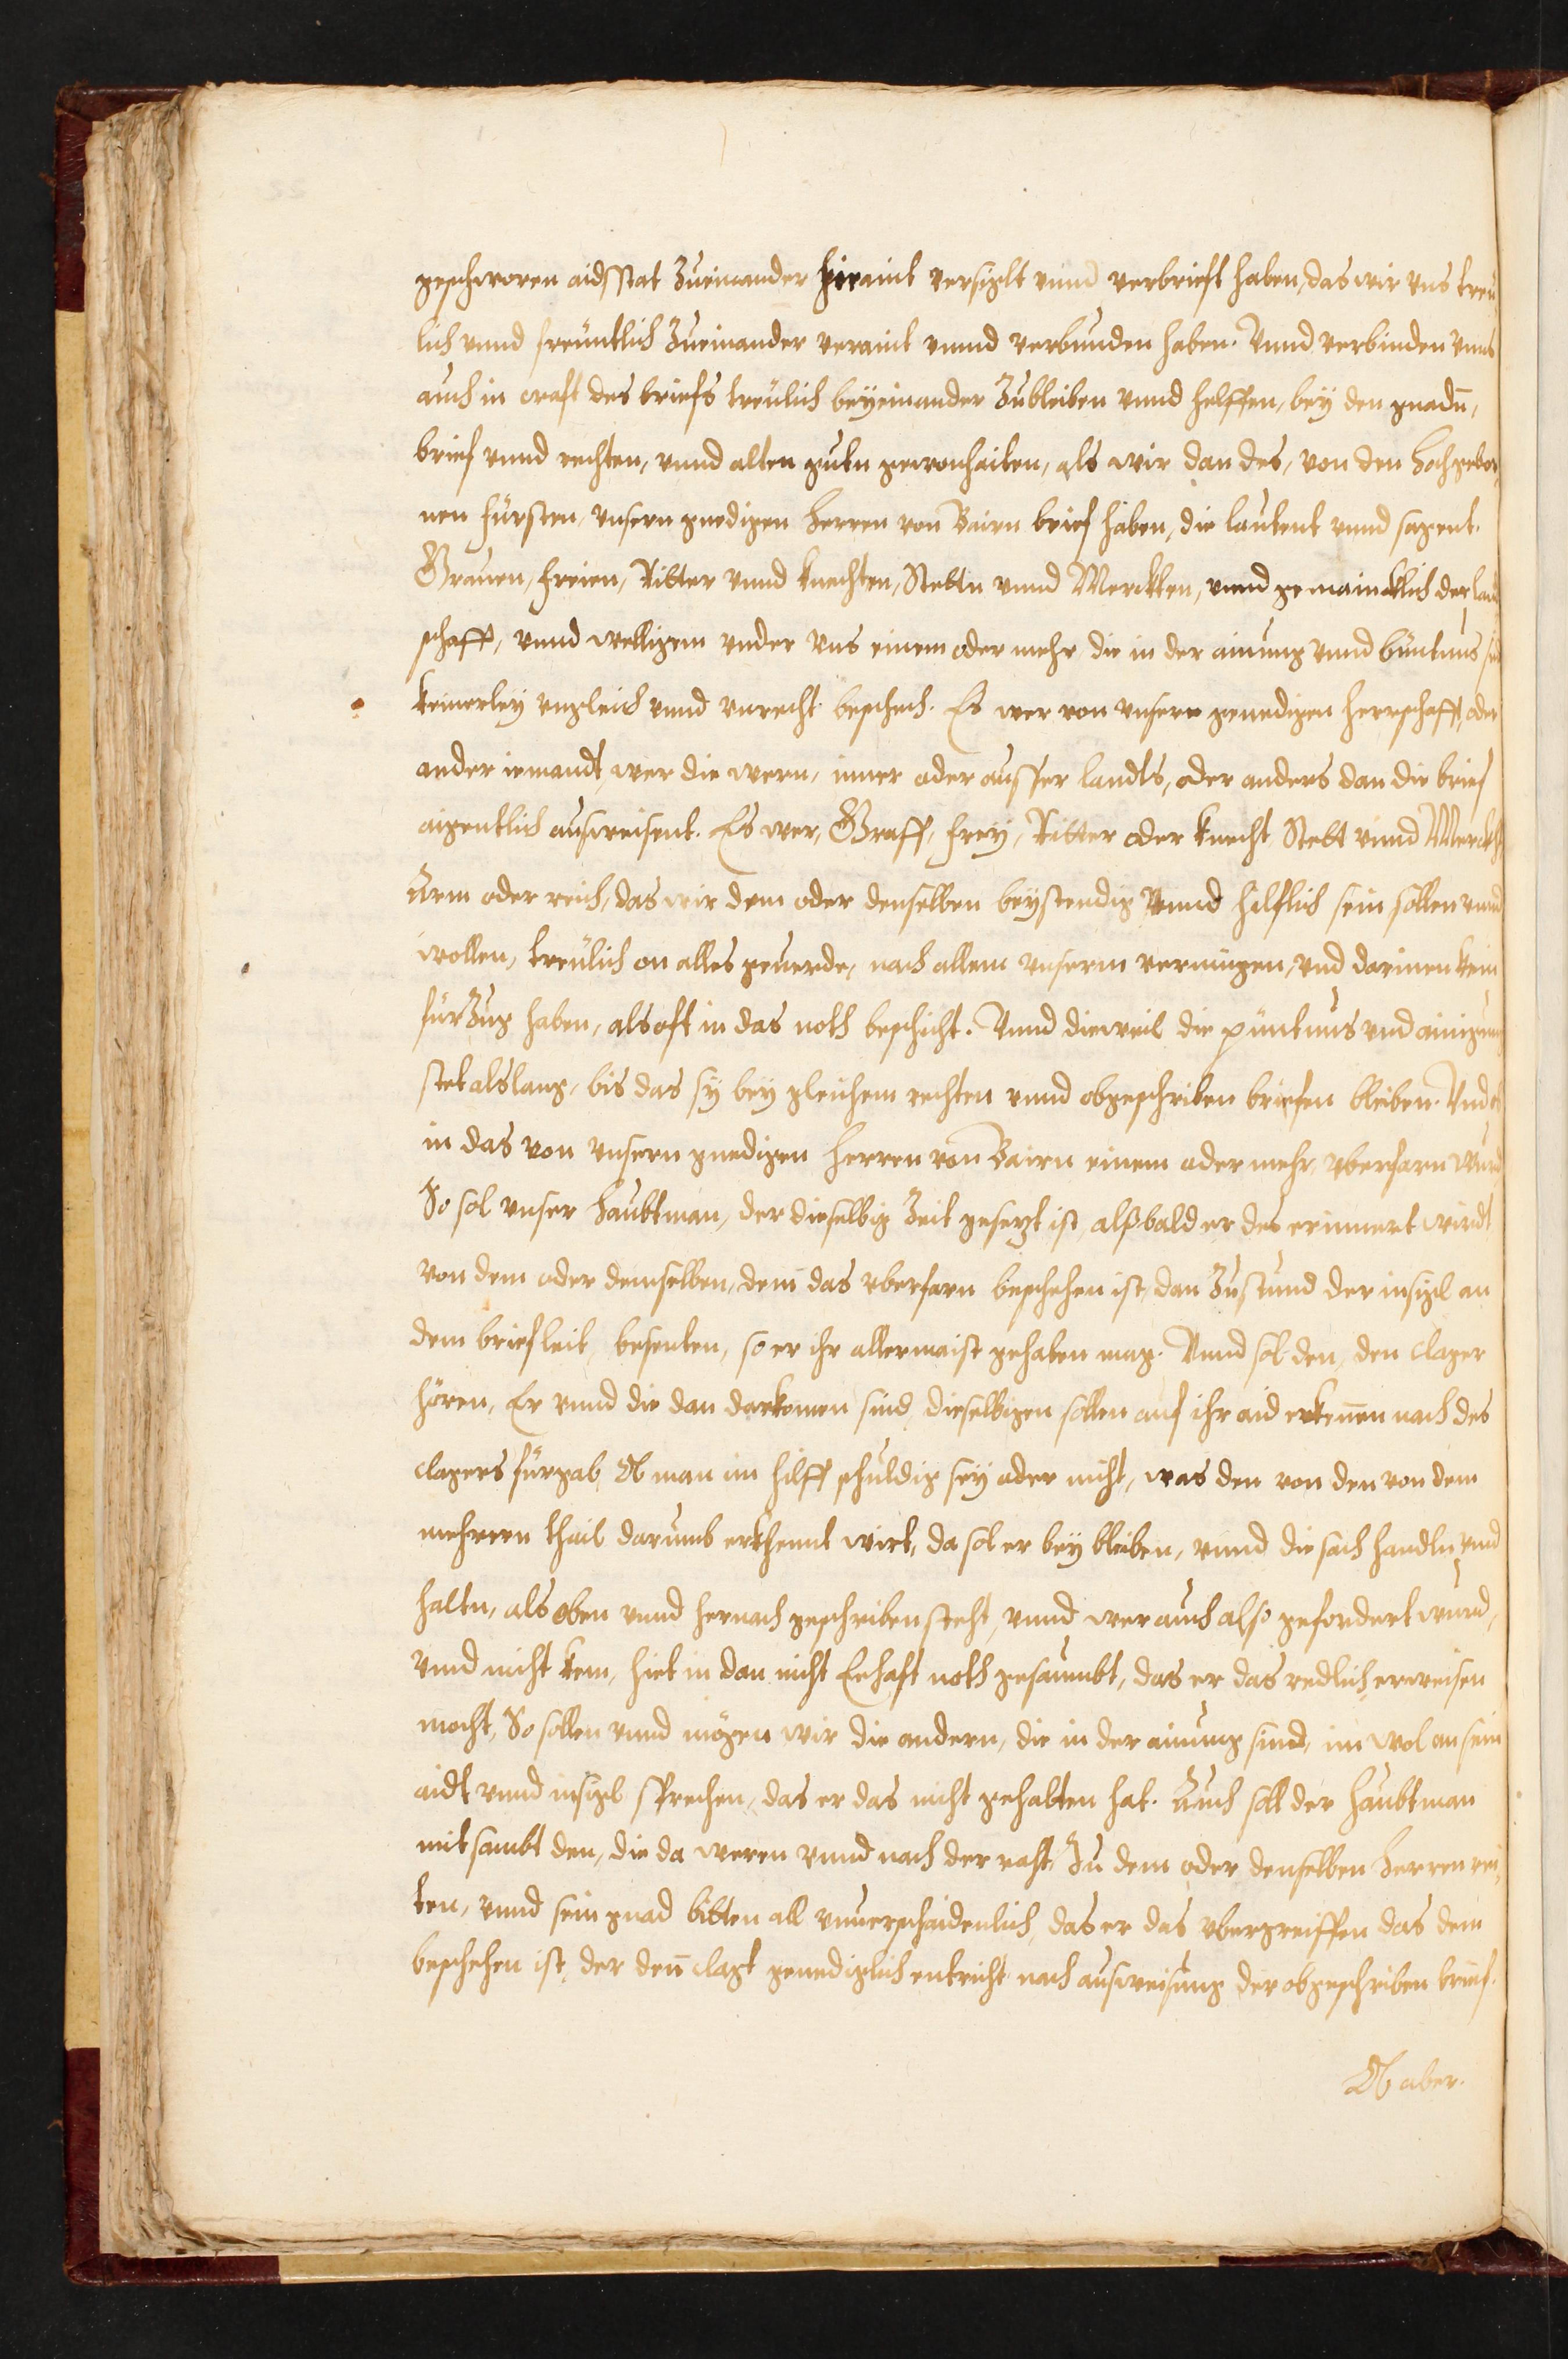 geschworen aidsstat zueinander hieraint versiglt vnnd verbrieft haben, das wir vns treu
lich vnnd freuntlich zueinander veraint vnnd verbunden haben. Vnnd verbinden vnns
auch in craft des briefs treulich beyeinander zubleiben vnnd helffen, bey den gnadn̄,
brief vnnd rechten, vnnd alten gutn gewonhaiten, als wir dan des, von den hochgebor
nen fürsten, vnsern gnedigen herren von Bairn brief haben, die lautent vnnd sagent.
Grauen, freien, Ritter vnnd knechten, Stettn vnnd Merckten, vnnd gemaincklich der land
schafft, vnnd welligem vnder vns einem oder mehr die in der ainung vnnd büntnus sind
keinerley vngleich vnnd vnrecht beschech. Es wer von vnsern genedigen herrschafft, oder
ander iemandt, wer die wern, inner oder ausser landts, oder anders dan die brief
aigentlich ausweisent. Es wer, Graff, frey, Ritter oder knecht, Stett vnnd Merckht,
Arm oder reich, das wir dem oder denselben beystendig vnnd hilflich sein sollen vnnd
wollen, treulich on alles geuerde, nach allem vnserm vermügen, vnd darinen kein
fürzug haben, als oft in das noth beschicht. Vnnd dieweil die püntnus vnd ainigung
stet als lang, bis das sy bey gleichem rechten vnnd obgeschriben briefen bleiben. Vnd ob
in das von vnsern gnedigen herren von Bairn einem oder mehr, vberfarn wurd
So sol vnser haubtman, der dieselbig zeit gesetzt ist, alßbald er des erinnert wirdt
von dem oder demselben, dem das vberfarn beschehen ist, dan zustund der insigl an
dem brief leit, besenten, so er ihr allermaist gehaben mag. Vnnd sol den, den clager
hören, Er vnnd die dan darkomen sind, dieselbigen sollen auf ihr aid erkenen nach des
clagers fürgab, Ob man im hilff schuldig sey oder nicht, was den von den von dem
mehrern thail darumb erkhennt wirt, da sol er bey bleiben, vnnd die sach handln vnd
haltn, als oben vnnd hernach geschriben steht, vnnd wer auch also gefordert wurd,
vnnd nicht kem, hiet in dan nicht Eehaft noth gesaumbt, das er das redlich erweisen
mocht, So sollen vnnd mögen wir die andern, die in der ainung sind, im wol an sein
aidt vnnd insigl sprechen, das er das nicht gehalten hat. Auch soll der haubtman
mitsambt den, die da weren vnnd nach der raht, zu dem oder denselben herren rei
ten, vnnd sein gnad bitten all vnuerschaidenlich, das er das vbergreiffen das dem
beschehen ist, der den̄ clagt genediglich entricht nach ausweisung der obgeschriben brief.
Ob aber.